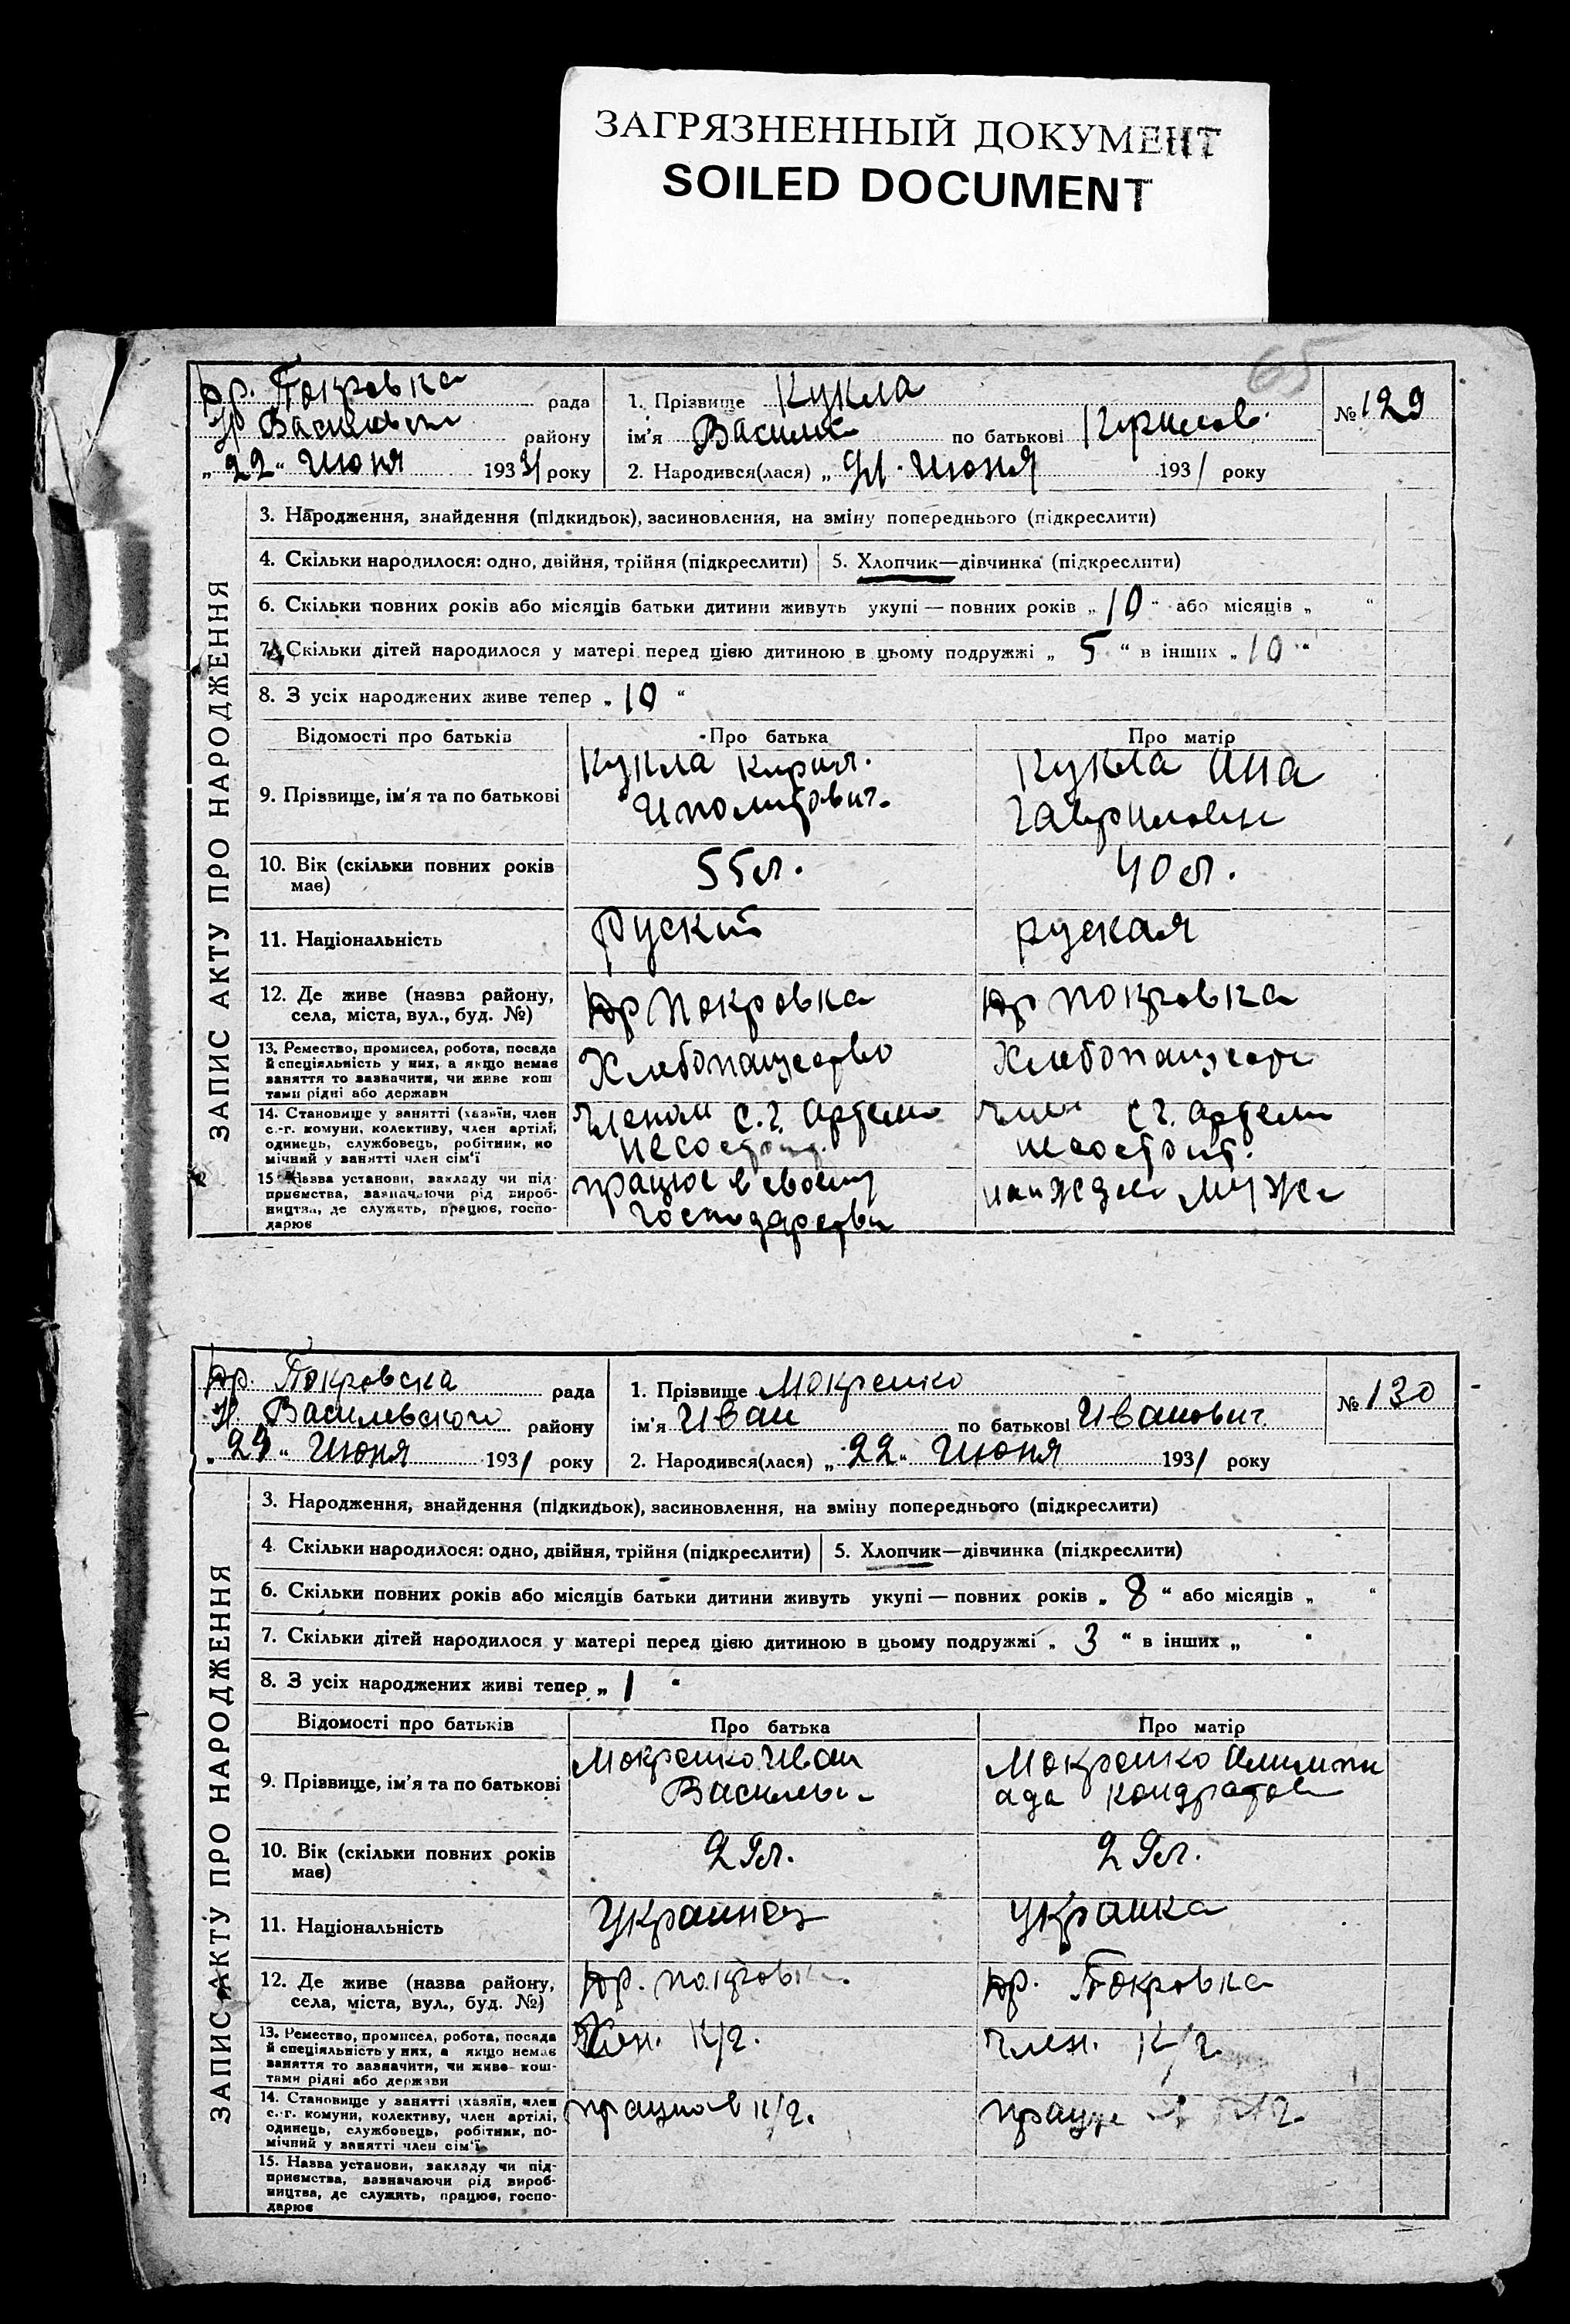 ЗАГРЯЗНЕННЫЙ ДОКУМЕНТ
SOILED DOCUMENT
65
ЗАПИС АКТУ ПРО НАРОДЖЕННЯ
Покровка рада
района району
„22“ Июня 1931 року
1. Прізвище Кукла
ім'я Василий по батькові Кирилов.
№ 129
2. Народився(лася) „ Июня 1931 року
3. Народження, знайдення (підкидьок), засиновлення, на зміну попереднього (підкреслити)
4. Скільки народилося: одно, двійня, трійня (підкреслити) 5. Хлопчик—дівчинка (підкреслити)
6. Скільки повних років або місяців батьки дитини живуть укупі — повних років „10“ або місяців „ “
7. Скільки дітей народилося у матері перед цією дитиною в цьому подружжі „5“ в інших „10“
8. З усіх народжених живе тепер „10“
Відомості про батьків Про батька Про матір
9. Прізвище, ім'я та по батькові
Кукла Кирил. Кукла Ана
Иполитович. Гавриловн
10. Вік (скільки повних років має) 55 л. 40 л.
11. Національність Руский руская
12. Де живе (назва району, села, міста, вул., буд. №) Покровка Покровка
13. Ремество, промисел, робота, посада
й спеціяльність у них, а якщо немає
заняття то зазначити, чи живе кош
тами рідні або держави
Хлебопашество Хлебопашество
14. Становище у занятті (хазяїн, член
с.-г. комуни, колективу, член артілі,
одинець, службовець, робітник, по
мічний у занятті член сім'ї
Членом с.г. артели член с.г. артели
несостоит. несостоит.
15. Назва установи, закладу чи під
приємства, зазначаючи рід вироб-
ництва, де служить, працює, госпо-
дарює
працює в своему
господарстви муже
ЗАПИС АКТУ ПРО НАРОДЖЕННЯ
Покровска рада
Василевского району
„ “ Июня 1931 року
1. Прізвище Мокренко
ім'я Иван по батькові Иванович
№ 130
2. Народився(лася) „22“ Июня 1931 року
3. Народження, знайдення (підкидьок), засиновлення, на зміну попереднього (підкреслити)
4. Скільки народилося: одно, двійня, трійня (підкреслити) 5. Хлопчик—дівчинка (підкреслити)
6. Скільки повних років або місяців батьки дитини живуть укупі — повних років „8“ або місяців „ “
7. Скільки дітей народилося у матері перед цією дитиною в цьому подружжі „3“ в інших „ “
8. З усіх народжених живі тепер „1“
Відомості про батьків Про батька Про матір
9. Прізвище, ім'я та по батькові
Мокренко Иван Мокренко
Васильев. Кондратов
10. Вік (скільки повних років має) 29 л. 29 л.
11. Національність Украинец Украинка
12. Де живе (назва району, села, міста, вул., буд. №) Покровка. Покровка
13. Ремество, промисел, робота, посада
й спеціяльність у них, а якщо немає
заняття то зазначити, чи живе кош-
тами рідні або держави
Член. к/г. член. к/г
14. Становище у занятті (хазяїн, член
с.-г. комуни, колективу, член артілі,
одинець, службовець, робітник, по-
мічний у занятті член сім'ї
працює в к/г. працує к/г.
15. Назва установи, закладу чи під-
приємства, зазначаючи рід вироб-
ництва, де служить, працює, госпо-
дарює